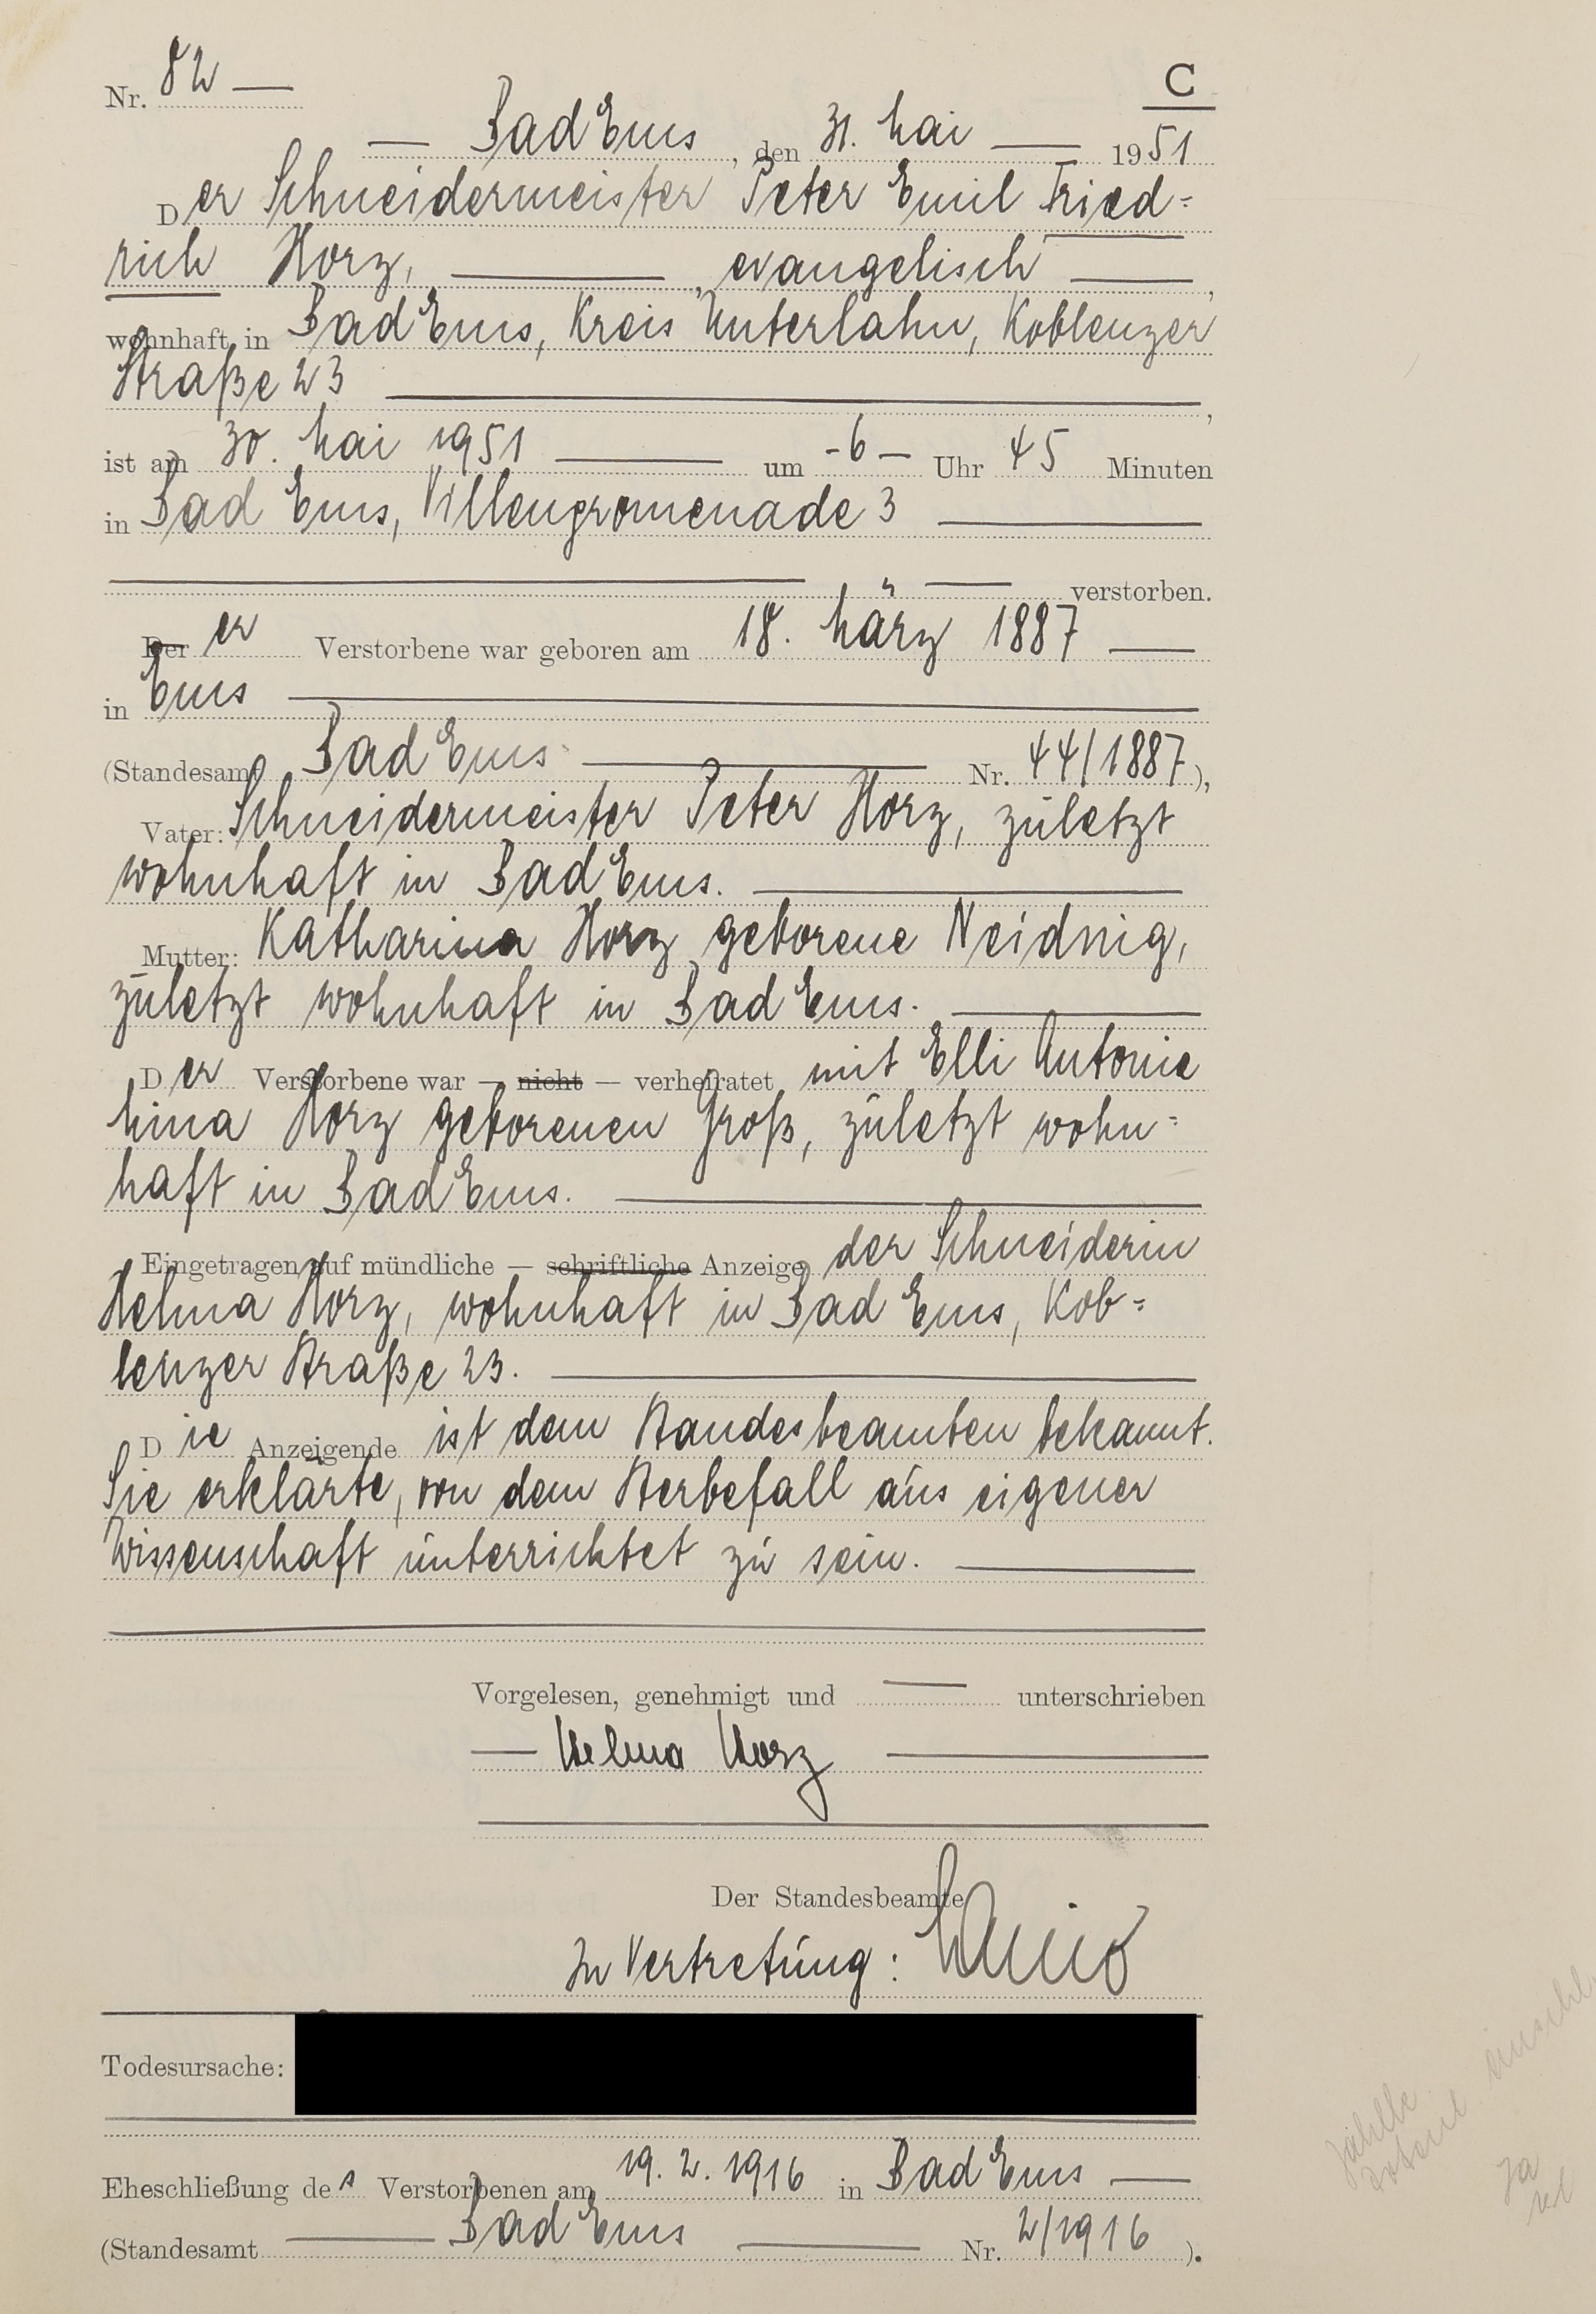 Nr. 82 —
C
— Bad Ems, den 31. Mai — 1951
Der Schneidermeister Peter Emil Fried=
rich Horz, — , evangelisch —,
wohnhaft in Bad Ems, Kreis Unterlahn, Koblenzer
Straße 23 —,
ist am 30. Mai 1951 — um -6- Uhr 45 Minuten
in Bad Ems, Villenpromenade 3 —
— verstorben.
Der er Verstorbene war geboren am 18. März 1887 —
in Ems —
(Standesamt Bad Ems — Nr. 44/1887),
Vater: Schneidermeister Peter Horz, zuletzt
wohnhaft in Bad Ems. —
Mutter: Katharina Horz geborene Neidnig,
zuletzt wohnhaft in Bad Ems. —
Der Verstorbene war — nicht — verheiratet mit Elli Antonie
Mina Horz geborenen Groß, zuletzt wohn=
haft in Bad Ems. —
Eingetragen auf mündliche — schriftliche Anzeige der Schneiderin
Helma Horz, wohnhaft in Bad Ems, Kob=
lenzer Straße 23. —
Die Anzeigende ist dem Standesbeamten bekannt.
Sie erklärte, von dem Sterbefall aus eigener
Wissenschaft unterrichtet zu sein. —
Vorgelesen, genehmigt und — unterschrieben
— Helma Horz —
Der Standesbeamte
In Vertretung:
Todesursache:
Eheschließung des Verstorbenen am 19. 2. 1916 in Bad Ems —
(Standesamt — Bad Ems — Nr. 2/1916).